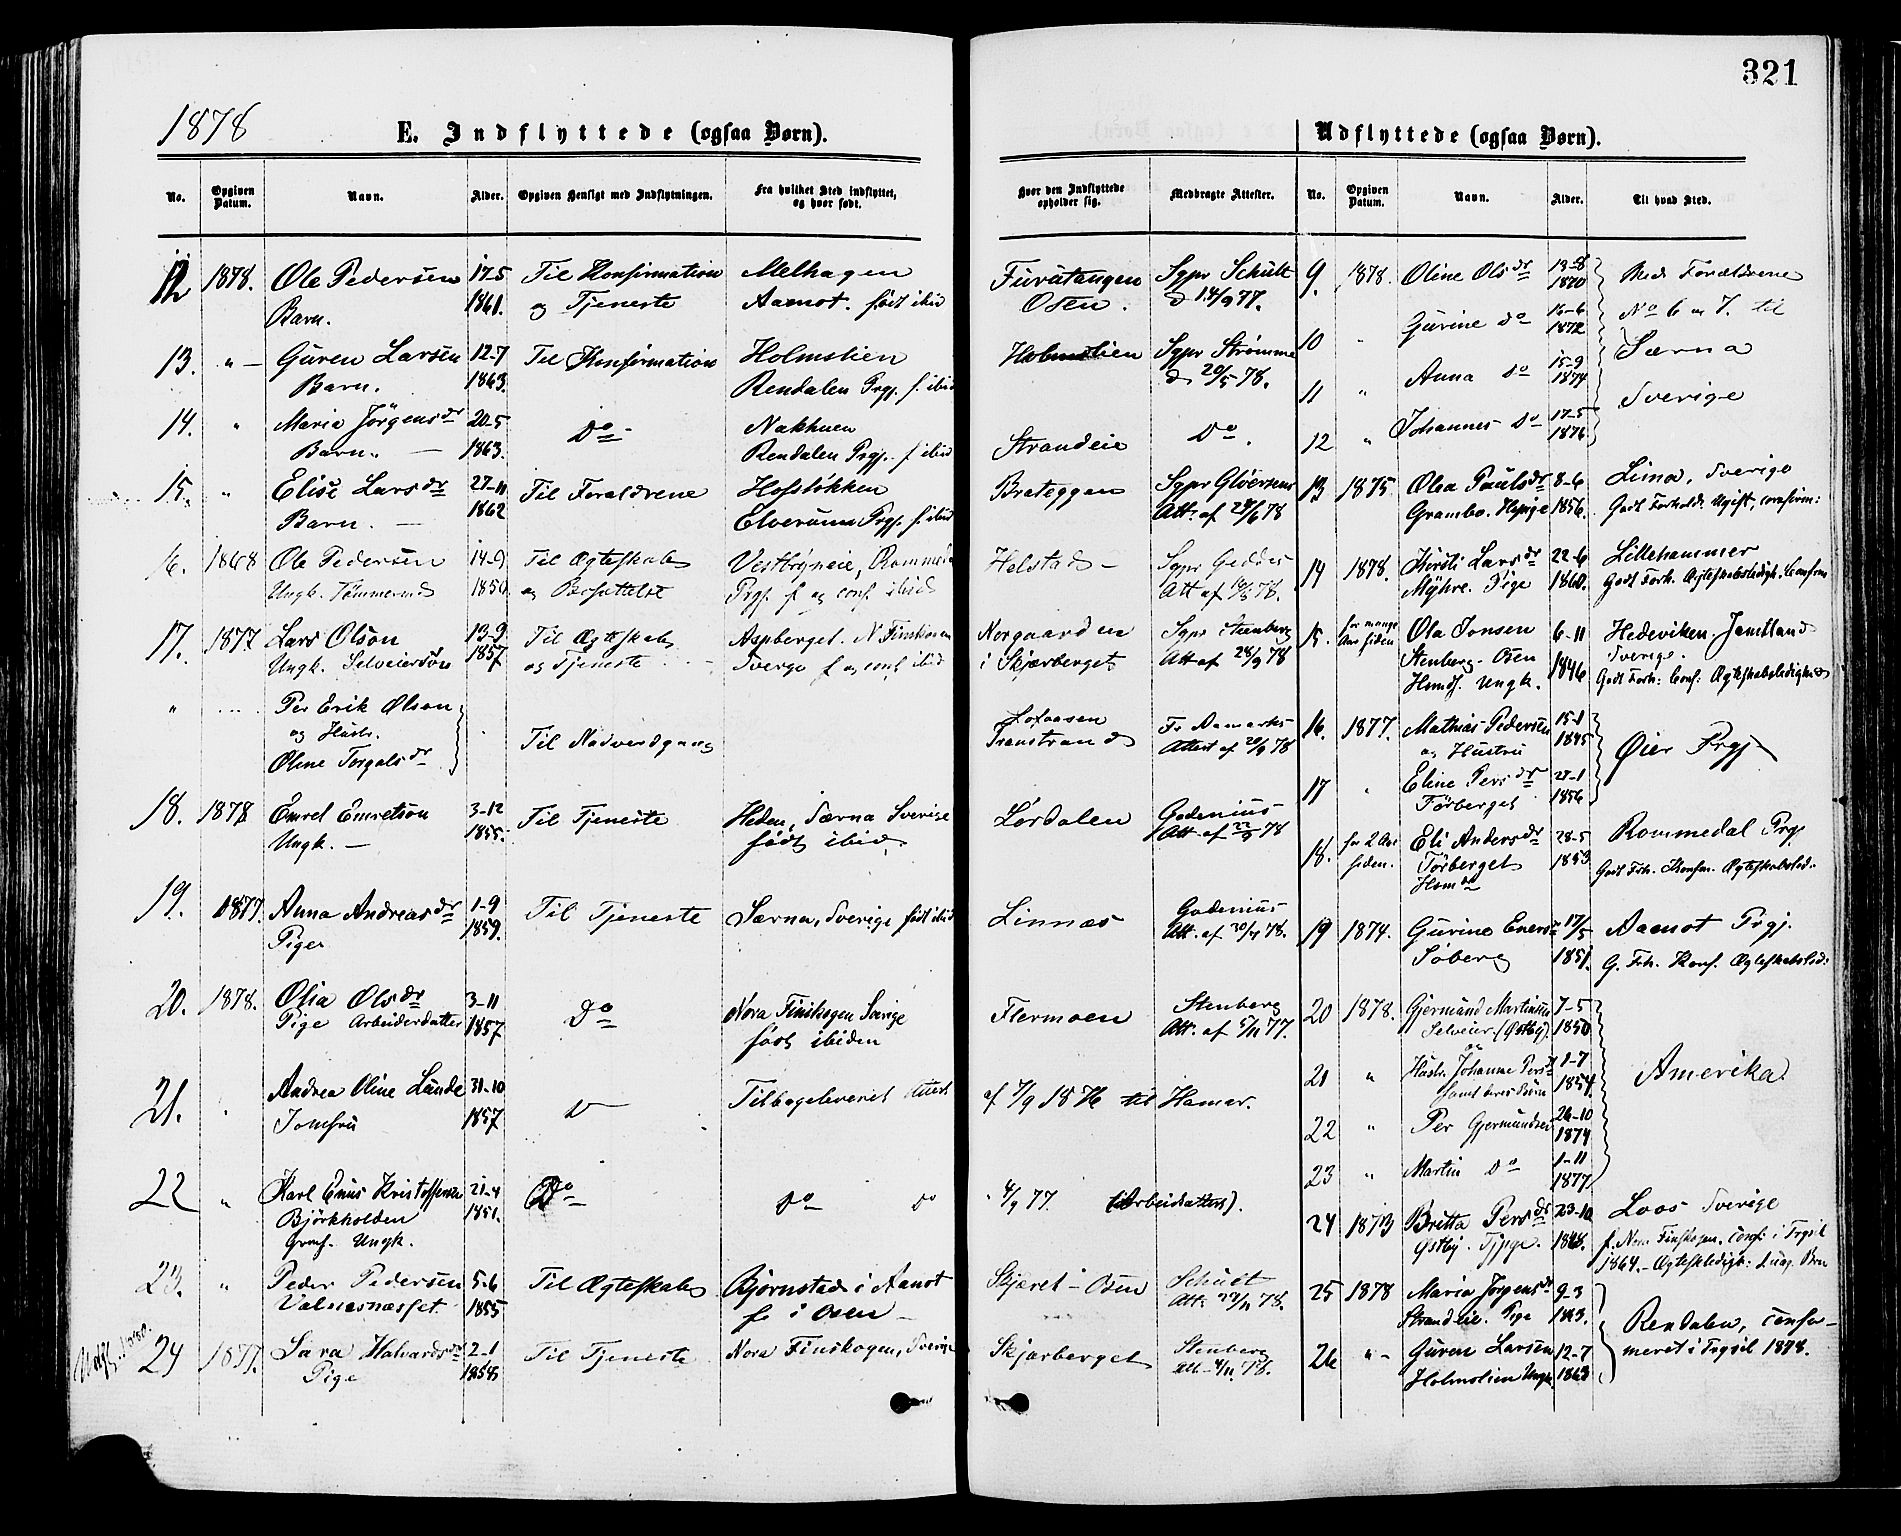 321
1878
E. Indflyttede (ogsaa Børn).
No.
Opgiven Datum.
Navn.
Alder.
Opgiven Hensigt med Indflytningen.
Fra hvilket Sted indflyttet, og hvor født.
Hvor den Indflyttede opholder sig.
Medbragte Attester.
12 1878. Ole Pedersen 17-5 Til Konfirmation Melhagen Furutangen Sgpr Schult
Barn. 1861. og Tjeneste Aamot. født ibid Osen. d 14/9 77.
13. " Guren Larsen 12-7 Til Konfirmation Holmslien Holmslien Sgpr Strømme
Barn. 1863. Rendalen Prgj. f. ibid d 20/5 78.
14. " Maria Jörgensdr 20-5 Do Nakhuen Strandeie Do.
Barn. 1863. Rendalen Prgj. f ibid
15. " Elise Larsdr 27-11 Til Forældrene Hofsløkken Brateggen Sgpr Gløersens
Barn. 1862 Elverum Prgj. f. ibid Att. af 28/6 78
16. 1868 Ole Pedersen 14-9 Til Ægteskab Vestbyneie, Rommedal Helstad Sgpr Geddes
Ungk. 1850 og Prgj. f og conf. ibid Att af 78.
17. 1877 Lars Olson 13-9 Til Ægteskab Aspberget. N. Finskogen Norgaarden Sgpr Stenberg
Ungk. Selveiersön 1857 og Tjeneste Sverge f og conf ibid i Skjærberget Att af 28/9 78
" Per Erik Olson
og Hustr. Til Nadverdgang Transtrand Attest af 20/9 78
Oline Torgalsdr
18. 1878 Emret Emretson 3-12 Til Tjeneste Heden, Særna Sverige Lørdalen Godenius
Ungk. 1855. født ibid Att. af 22/9 78
19. 1877. Anna Andreasdr 1-9 Til Tjeneste Særna, Sverige født ibid Linnæs Godenius
Piger 1859. Att. af 78.
20. 1878. Olia Olsdr 3-11 Do Nora Finskogen Sverige Flermoen Stenberg
Pige Arbeiderdatter 1857. født ibiden Att. af 5/11 77.
21. " Andrea Oline Lunde 31-10 Do Tilbageleveret Attest af 7/9 1876 til Hamar.
Jomfru 1857
22 " Karl Enus Kristoffersen 21-4 Do do do 4/9 77 (Arbeidsattest).
Björkholden 1851.
Ungk.
23. " Peder Pedersen 5-6 Til Ægteskab Björnstad i Aamot Skjæret - Osen Schult
Valnesnæsset 1855 f. i Osen Att. 78.
24 1877. Sara Halvardsdr 2-1 Til Tjeneste Nora Finskogen, Sverige Skjærberget Stenberg
Pige 1858 Att. 4/11 78.
Udflyttede (ogsaa Børn).
No.
Opgiven Datum.
Navn.
Alder.
Til hvad Sted.
9. 1878. Oline Olsdr 13-8 1870 Med Forældrene
10 " Gurine do 16-6 1872 No 6 og 7. til
11 " Anna do 15-9 1874 Særna
12 " Johannes do 17-5 1876 Sverige
13 1875 Olea Paulsdr 8-6 Lima, Sverige
Grambo. Hpige 1856. Godt Forhold. Ugift, confirm:
14 1878. Kirsti Larsdr 22-6 Lillehammer
Myhre. Pige 1860. Godt Forh. Ægteskabsledigh. Confirm
15. for mange Aar siden Ola Jonsen 6-11 Hedeviken. Jemtland
Stenberg. Osen 1846 Sverige.
Husmf. Ungk. Godt Forh: Conf: Ægteskabsledighed
16. 1877. Mathias Pedersen 15-1 1845 Øier Prgj
og Hustru
17 " Eline Persdr 27-1
Törberget 1856
18. for 2 Aar siden. Eli Andersdr 28-5 Rommedal Prgj
Törberget 1853 Godt Frh. Konfm. Ægteskabsled.
Hsmdr
19 1874. Gurine Enersdr 17/5 Aamot Prgj.
Søberg 1851. G. Frh. Konf. Ægteskabsled:
20 1878. Gjermund Martinsen 7-5
Selveier (Østby) 1850
og
21 " Hustr. Johanne Persdr 1-7 Amerika.
samt deres Børn 1854.
22 " Per Gjermundsen 26-10 1874
23 " Martin do 1-11 1877
24 1873 Britta Persdr 23-10 Loos Sverige
Østby. Tjpge. 1848. f. Nora Finskogen, Conf: i Trysil
1864. - Ægteskledigh:
25 1878 Maria Jörgensdr 9-3
Strandeie. Pige 1863. Rendalen, confir-
26 " Guren Larsen 12-7 meret i Trysil 1878.
Holmslien Ungk. 1863